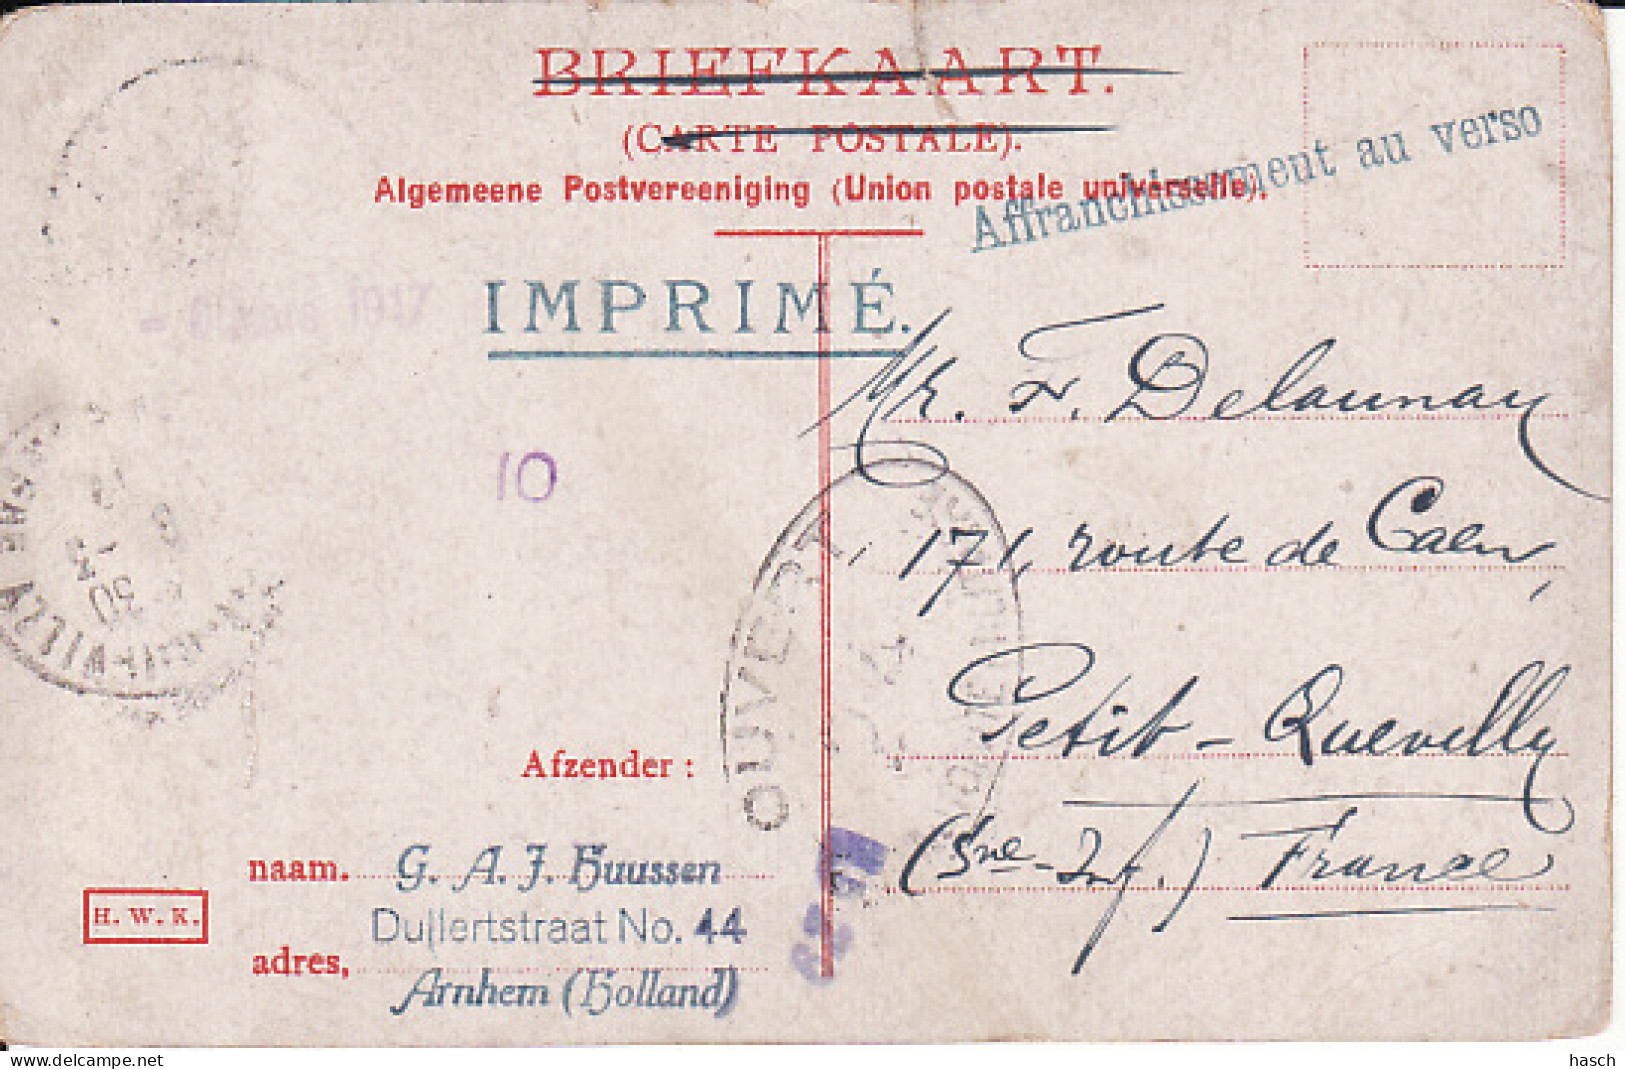 BRIEFKAART.
(CARTE POSTALE).
Algemeene Postvereeniging (Union postale universelle).
Affranchissement au verso
IMPRIMÉ.
1917
10
Mr. F. Delaunay
171, route de Caen,
Petit-Quevilly
(Sne-Inf.) France
OUVERT
Afzender:
naam. G. A. J. Huussen
Dullertstraat No. 44
adres, Arnhem (Holland)
H. W. K.
hasch
delcampe.net